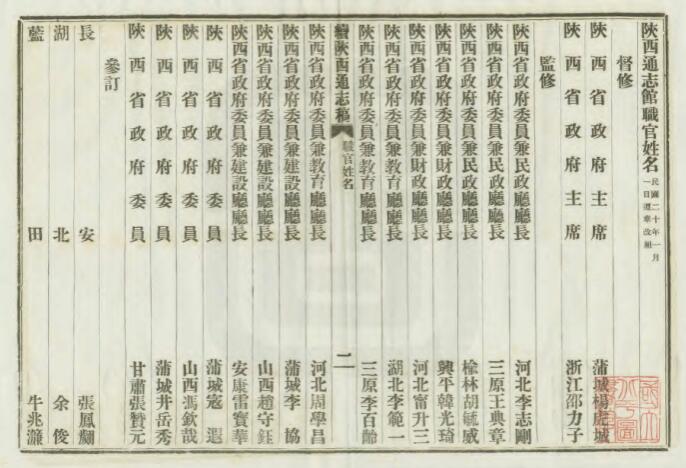 陝西通志館職官姓名民國二十年一月一日遵章改組
督修
陝西省政府主席 蒲城楊虎城
陝西省政府主席 浙江邵力子
監修
陝西省政府委員兼民政廳廳長 河北李志剛
陝西省政府委員兼民政廳廳長 三原王典章
陝西省政府委員兼民政廳廳長 榆林胡毓威
陝西省政府委員兼財政廳廳長 興平韓光琦
陝西省政府委員兼財政廳廳長 河北甯升三
陝西省政府委員兼教育廳廳長 湖北李範一
陝西省政府委員兼教育廳廳長 三原李百齡
續陝西通志稿 職官姓名 二
陝西省政府委員兼教育廳廳長 河北周學昌
陝西省政府委員兼建設廳廳長 蒲城李協
陝西省政府委員兼建設廳廳長 山西趙守鈺
陝西省政府委員兼建設廳廳長 安康雷寶華
陝西省政府委員 蒲城寇遐
陝西省政府委員 山西馮欽哉
陝西省政府委員 蒲城井岳秀
陝西省政府委員 甘肅張贊元
參訂
長安 張鳳翽
湖北 余俊
藍田 牛兆濂